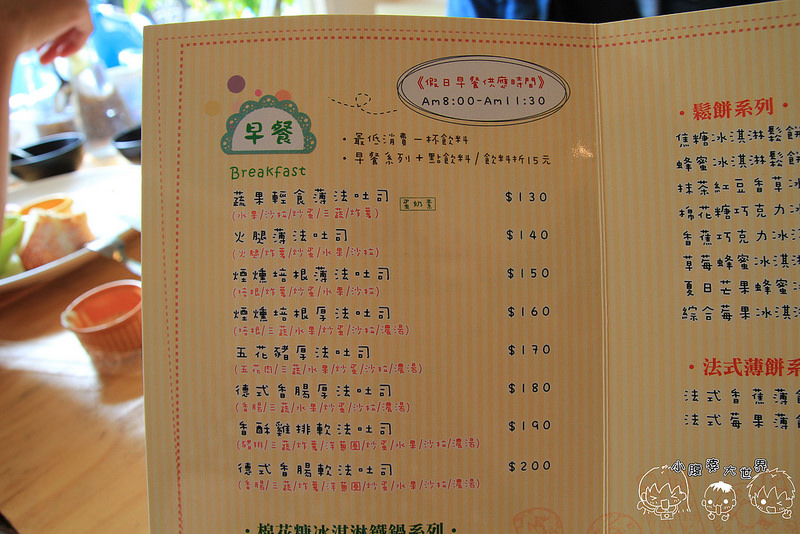 《假日早餐供應時間》
Am8:00-Am11:30
早餐
Breakfast
・最低消費一杯飲料
・早餐系列+點飲料/飲料折15元
蔬果輕食薄法吐司 蛋奶素 $130
(水果/沙拉/炒蛋/三蔬/炸薯)
火腿薄法吐司 $140
(火腿/炸薯/炒蛋/水果/沙拉)
煙燻培根薄法吐司 $150
(培根/炸薯/炒蛋/水果/沙拉)
煙燻培根厚法吐司 $160
(培根/三蔬/水果/炒蛋/沙拉/濃湯)
五花豬厚法吐司 $170
(五花肉/三蔬/水果/炒蛋/沙拉/濃湯)
德式香腸厚法吐司 $180
(香腸/三蔬/水果/炒蛋/沙拉/濃湯)
香酥雞排軟法吐司 $190
(豬排/三蔬/炸薯/洋蔥圈/炒蛋/水果/沙拉/濃湯)
德式香腸軟法吐司 $200
(香腸/三蔬/炸薯/洋蔥圈/炒蛋/水果/沙拉/濃湯)
・棉花糖冰淇淋鐵鍋系列・
・鬆餅系列・
焦糖冰淇淋鬆餅
蜂蜜冰淇淋鬆餅
抹茶紅豆香草冰
棉花糖巧克力冰
香蕉巧克力冰淇
草莓蜂蜜冰淇淋
夏日芒果蜂蜜冰
綜合莓果冰淇淋
・法式薄餅系
法式香蕉薄餅
法式莓果薄餅
小腹婆大世界